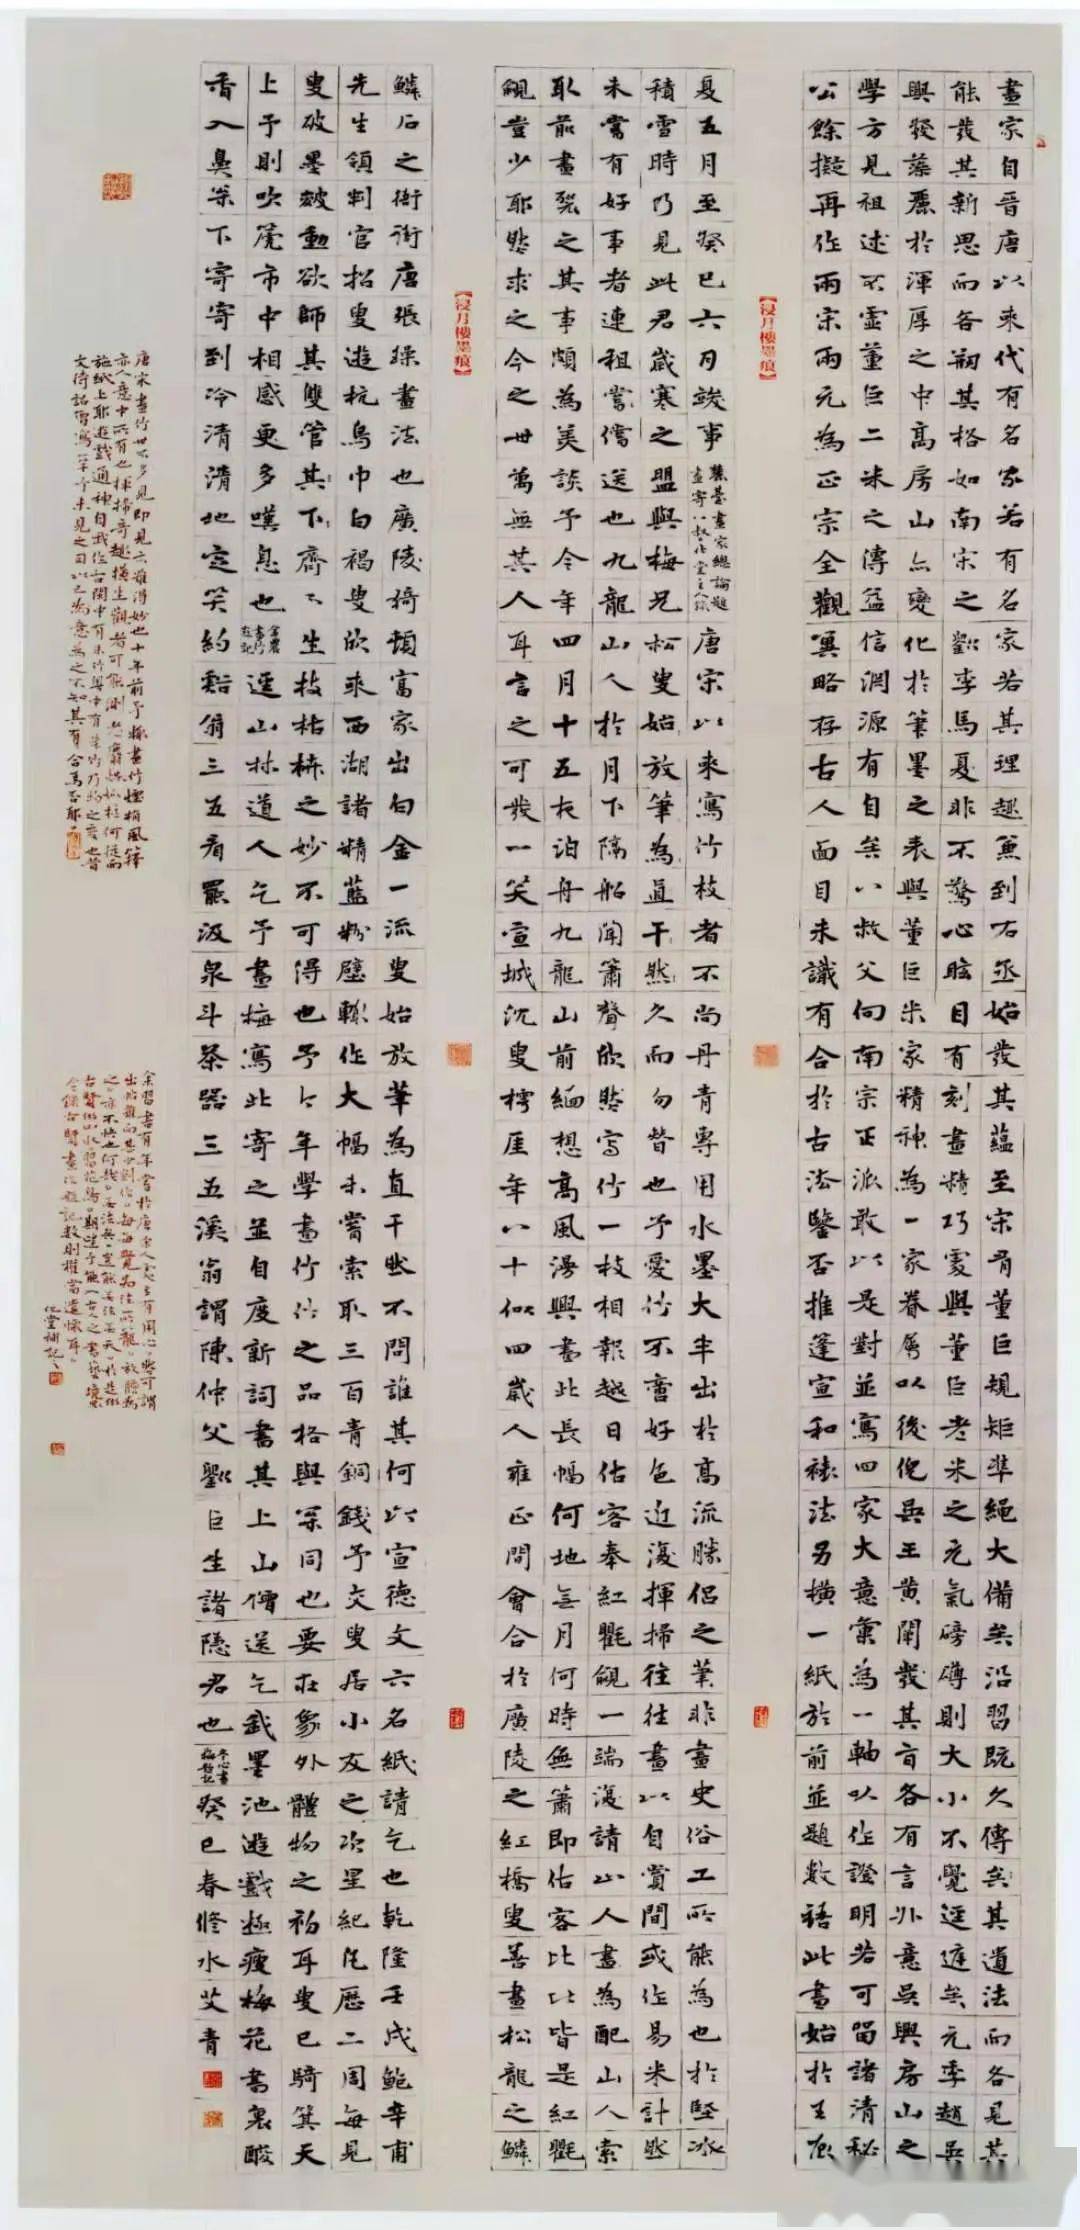 畫家自晉唐以來代有名家若有名家若其理趣兼到右丞始發其蘊至宋有董巨規矩準繩大備矣沿習既久傳矣其遺法而各見其
能發其新思而各剏其格如南宋之劉李馬夏非不驚心眩目有刻畫精巧處與董巨老米之元氣磅礴則大小不覺逕庭矣元季趙吳
興發藻麗於渾厚之中高房山示變化於筆墨之表與董巨米家精神為一家眷屬以後倪吳王黃闡發其旨各有言外意吳興房山之
學方見祖述不虛董巨二米之傳益信淵源有自矣八叔父向南宗正派敢以是對並寫四家大意彙為一軸以作證明若可留諸清秘
公餘擬再作兩宋兩元為正宗全觀冀略存古人面目未識有合於古法鑒否推篷宣和裱法另橫一紙於前並題數語此畫始於壬辰
【浸月樓墨痕】
夏五月至癸巳六月竣事麓臺畫家總論題畫寄八叔唐宋以來寫竹枝者不尚丹青專用水墨大半出於高流勝侶之筆非畫史俗工所能為也於堅冰
積雪時乃見此君歲寒之盟與梅兄松叟始放筆為直干然久而勿替也予愛竹不啻好色近復揮掃往往畫以自賞間或作易米計然
未嘗有好事者連租嘗儋送也九龍山人於月下隔船聞簫聲欣然寫竹一枝相報越日估客奉紅氍毹一端復請山人畫為配山人索
取前畫裂之其事頗為美談予今年四月十五夜泊舟九龍山前緬想高風漫興畫此長幅何地無月何時無簫即估客比比皆是紅氍
毹豈少耶然求之今之世萬無其人耳言之可發一笑宣城沈叟樗厓年八十似四歲人雍正間會合於廣陵之紅橋叟善畫松龍之鱗
【浸月樓墨痕】
鱗石之銜銜唐張璪畫法也廣陵猗頓富家出白金一流叟始放筆為直干然不問誰其何以宣德文六名紙請乞也乾隆壬戌鮑辛甫
先生領判官招叟遊杭烏巾白褐叟欣來西湖諸精藍粉壁輒作大幅未嘗索取三百青銅錢予交叟居小友之次星紀凡歷二周每見
叟破墨皴動欲師其雙管其下齊下生枝枯枿之妙不可得也予今年學畫竹竹之品格與同也要在象外體物之初耳叟已騎箕天
上予則吹篪市中相感更多嘆息也金農畫竹題記還山林道人乞予畫梅寫此寄之並自度新詞書其上山僧送乞貳墨池遊戲極瘦梅花畫裏酸
香入鼻朵下寄寄到冷清清地定笑約谿翁三五看罷汲泉斗茶器三五溪翁謂陳仲父劉巨生諸隱君也冬心畫梅題記癸巳春修水艾青
唐宋畫竹世不多見即見亦難得妙也十年前予畫竹煙梢風籜
亦人意中所有也揮掃奇趣橫生觀者可能測
施紙上耶遊戲通神自我作古閩中有朱竹
文待詔曾寫一竿予未見之因以己為意為之不知其有合焉否耶
余習書有年
今錄古賢畫論題記數則權當遣懷耳